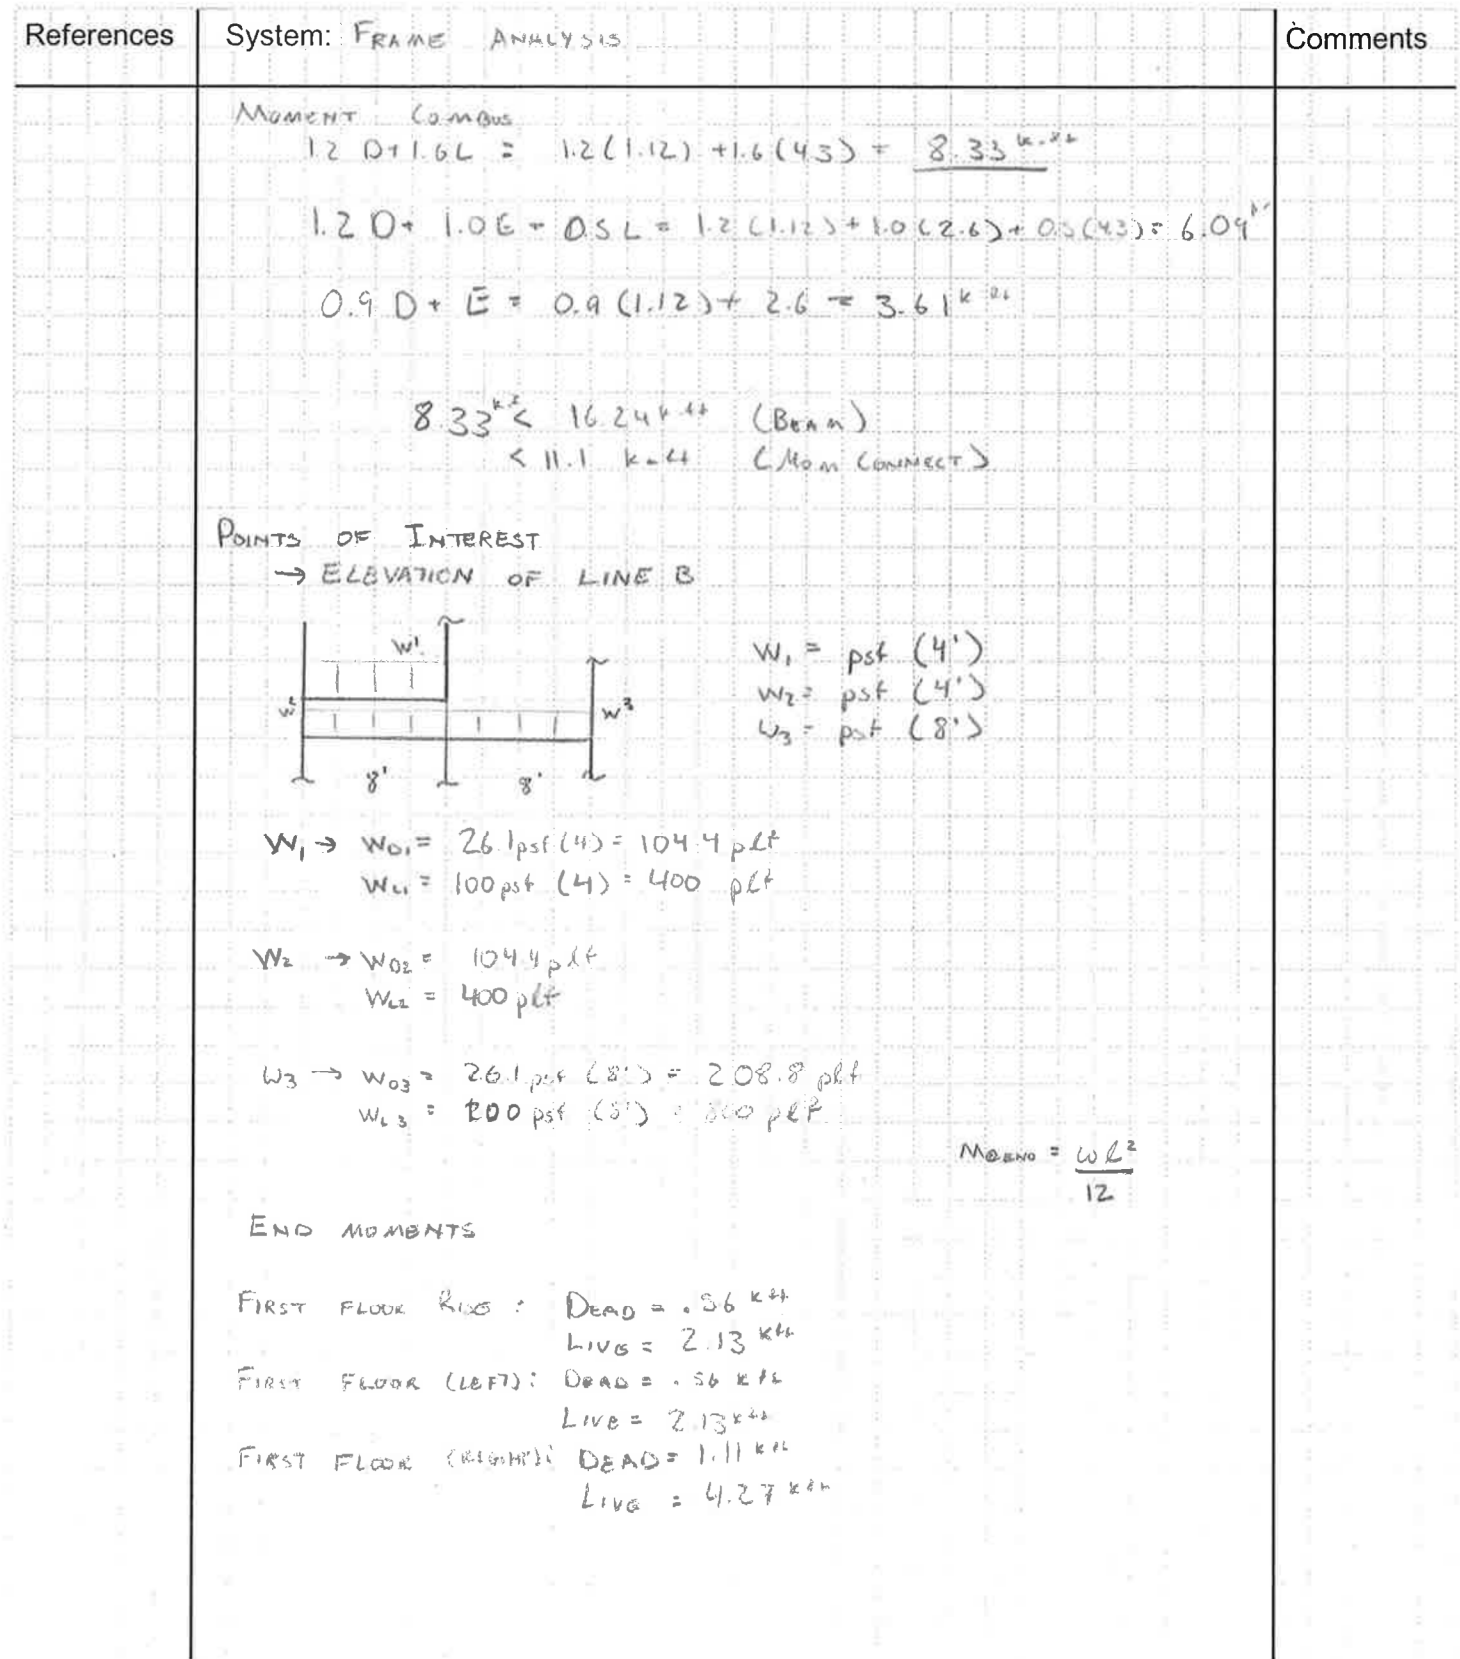 References
System: FRAME ANALYSIS
Comments
MOMENT COMBOS
1.2 D+1.6L = 1.2(1.12) +1.6(4.3) = 8.33 k-ft
1.2 D+ 1.0E + 0.5L = 1.2(1.12)+1.0(2.6)+0.5(4.3)= 6.09
0.9 D+ E = 0.9 (1.12)+ 2.6 = 3.61 k-ft
8.33 < 16.24 k-ft (BEAM)
< 11.1 k-ft (MOM CONNECT)
POINTS OF INTEREST
→ ELEVATION OF LINE B
W1
W2
W3
8'
8'
W1 = psf (4')
W2 = psf (4')
W3 = psf (8')
W1 → WD1 = 26.1psf(4) = 104.4 plf
WL1 = 100 psf (4) = 400 plf
W2 → WD2 = 104.4 plf
WL2 = 400 plf
W3 → WD3 = 26.1 psf (8') = 208.8 plf
WL3 = psf (8') = 800 plf
M@END = wl²/12
END MOMENTS
FIRST FLOOR : DEAD = .56 k-ft
LIVE = 2.13 k-ft
FIRST FLOOR (LEFT): DEAD = .56 k-ft
LIVE = 2.13 k-ft
FIRST FLOOR (RIGHT): DEAD = 1.11 k-ft
LIVE = 4.27 k-ft